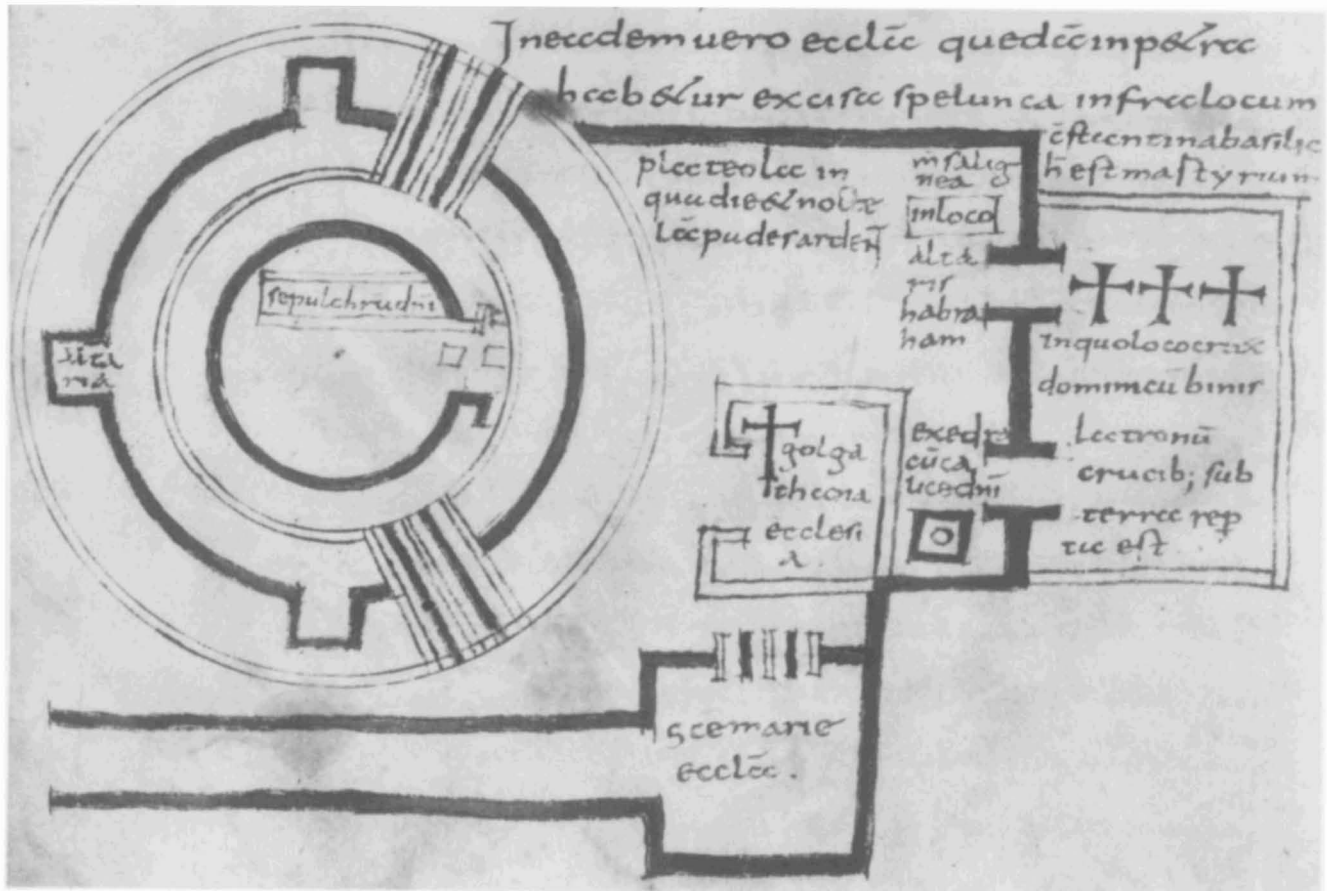 Ineadem uero ecclā quedā inpetra
habetur excisa spelunca infra locum
c̄stantinabasilic
h̄ estmartyrium
plateola in
quadie&nocte
lāpadesarden̄
m̄salig
nea
inloco
alta
ris
habra
ham
sepulchrudn̄i
alta
ria
inquolococrux
dominicūbinis
latronū
crucib; sub
terra rep
ta est
golga
thana
ecclesi
a.
exedra
cūca
licedn̄i
s̄cemarie
ecclā.